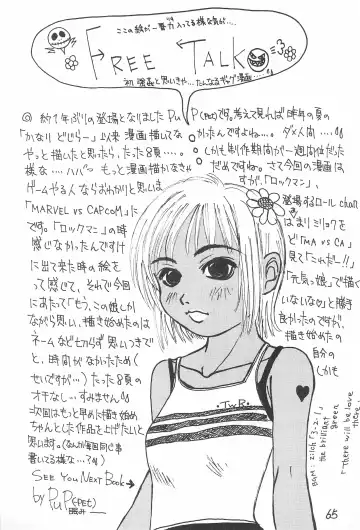 ここの絵が一番力入ってる様な気が…
FREE TALK
初漫画と思いきや…たんなるギャグ漫画…
◎約1年ぶりの登場となりました PuP(PET)です。考えて見れば昨年の夏の
「かなり どじらー」以来 漫画描いてな かったんですよねー…。ダメ人間……
やっと描いたと思ったら、たった8頁…。 しかも制作期間が一週間位だった
様な… ハハ゛ もっと漫画描かなきゃ だめですね。さて今回の漫画は
ゲームやる人ならおわかりと思いま すが、「ロックマン」、
「MARVEL vs CAPCOM」た 登場するロール chan
です。「ロックマン」の時 はあまりミリョクを
感じなかったんですけ ど「MA vs CA」
に出て来た時の絵を 見て「これだー!!」
って感じて、それで今回 「元気っ娘」で描く
にあたって「もう、この娘しか いないなぁ」と
ながら思い、描き始めたのは 良かったのですが、
ネームなど切らず思いつきで 描き始めたの
と、時間がなかったため 自分の
せいですが…)たった8頁の しかも
オチなし…すみません
次回はもっと早め描き始め
ちゃんとした作品を上げたいと
思います。(なんか毎回同じ事
書いてる様な…?)
SEE YOU NEXT BOOK→
by PuP(PET)
T.W.R.
BGM: zilch「3・2・1」
the brilliant green
「There will be love there」
65